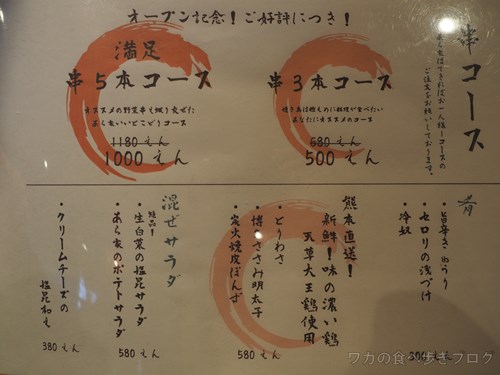 オープン記念！ご好評につき！
串コース
あら家はできればお一人様一コースの
ご注文をお願いしております。
串3本コース
焼き鳥は控えめに料理が食べたい
あなたにオススメのコース
580えん
500えん
満足
串5本コース
オススメの野菜串も織り交ぜた
あら家いいとこどりコース
1180えん
1000えん
肴
・旨辛きゅうり
・セロリの浅づけ
・冷奴
300えん
熊本直送！
新鮮！味の濃い鶏
天草大王鶏使用
・とりわさ
・博多ささみ明太子
・炭火焼皮ぽんず
580えん
混ぜサラダ
・絶品！
生白菜の塩昆サラダ
・あら家のポテトサラダ
580えん
・クリームチーズの
塩昆和え
380えん
ワカの食べ歩きブログ